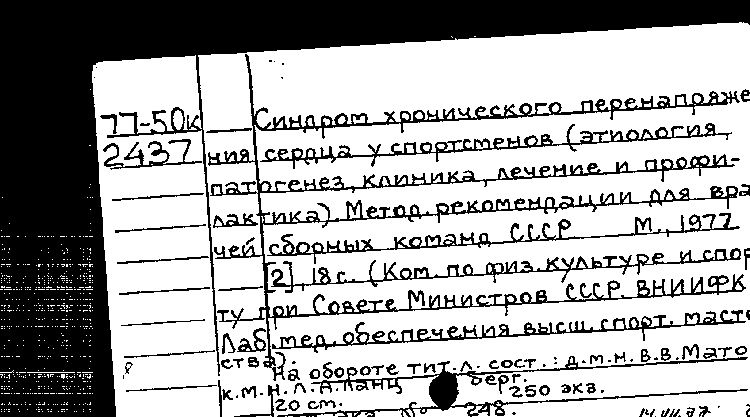 77-50к Синдром хронического перенапряже
2437 ния сердца у спортсменов (этиология,
патогенез, клиника, лечение и профи-
лактика). Метод. рекомендации для вра
чей сборных команд СССР М., 1977
[2], 18 с. (Ком. по физ. культуре и спор
ту при Совете Министров СССР. ВНИИФК
Лаб. мед. обеспечения высш. спорт. масте
ства).
На обороте тит. л. сост.: д.м.н. В.В. Мато
к.м.н. Л.А. Ланц берг.
20 см. 250 экз.
№ 248.